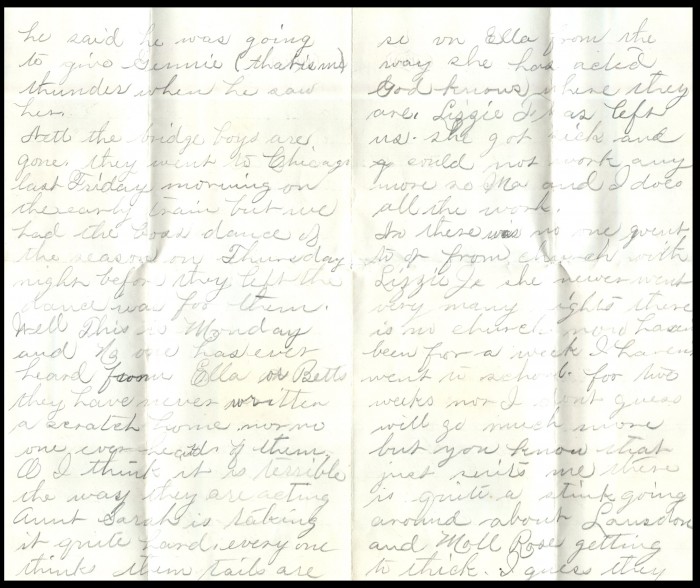 he said he was going
to give Jennie (that is me)
thunder when he saw
her.
All the bridge boys are
gone. they went to Chicago
last Friday morning on
the early train but we
had the boss dance of
the season on Thursday
night before they left the
dance was for them.
Well This is Monday
and No one has ever
heard from Ella or Betts
they have never written
a scratch home nor no
one ever heard of them
O I think it is terrible
the way they are acting
Aunt Sarah is taking
it quite hard. every one
think them tails are
so on Ella from the
way she has acted
God knows where they
are. Lizzie has left
us. she got sick and
could not work any
more so Ma and I does
all the work.
there was no one went
to or from church with
Lizzie she never went
very many nights there
is no church now hasn
been for a week I haven
went to school for two
weeks nor I dont guess
will go much more
but you know that
just suits me there
is quite a stink going
around about
and Moll Rose getting
to thick. I guess they